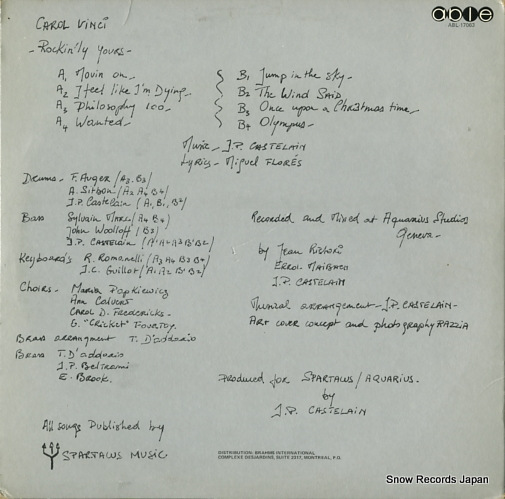 CAROL VINCI
able
ABL-17003
- Rockin'ly yours -
A1 Movin on -
A2 I feel like I'm Dying -
A3 Philosophy 100 -
A4 Wanted -
B1 Jump in the sky -
B2 The Wind Said
B3 Once upon a Christmas time -
B4 Olympus -
Music - J.P. CASTELAIN
Lyrics - Miguel FLORÈS
Drums - F. Auger (A3 . B3)
A. Sitbon (A2 A4 B4)
J.P. Castelain (A1, B1, B2)
Bass Sylvain Marc (A4 B4)
John Woolloff (B2)
J.P. CASTELAIN (A1 A2 A3 B1 B2)
Keyboards R. Romanelli (A3 A4 B3 B4)
J.C. Guillot (A1 A2 B1 B2)
Choirs - Maria Popkiewicz
Ann Calvert
CAROL D. Fredericks -
G. "Cricket" Fourtoy.
Brass arrangment T. D'addario
Brass T. D'addario
J.P. Beltrami
E. Brook.
Recorded and Mixed at Aquarius Studios
Geneva -
by Jean Ristori
ERROL
J.P. CASTELAIN
Musical arrangement - J.P. CASTELAIN -
Art cover concept and photography RAZZIA
Produced for SPARTACUS / AQUARIUS -
by
J.P. CASTELAIN
All songs Published by
SPARTACUS MUSIC
DISTRIBUTION: BRAHMS INTERNATIONAL
COMPLEXE DESJARDINS, SUITE 2317, MONTREAL, P.Q.
Snow Records Japan